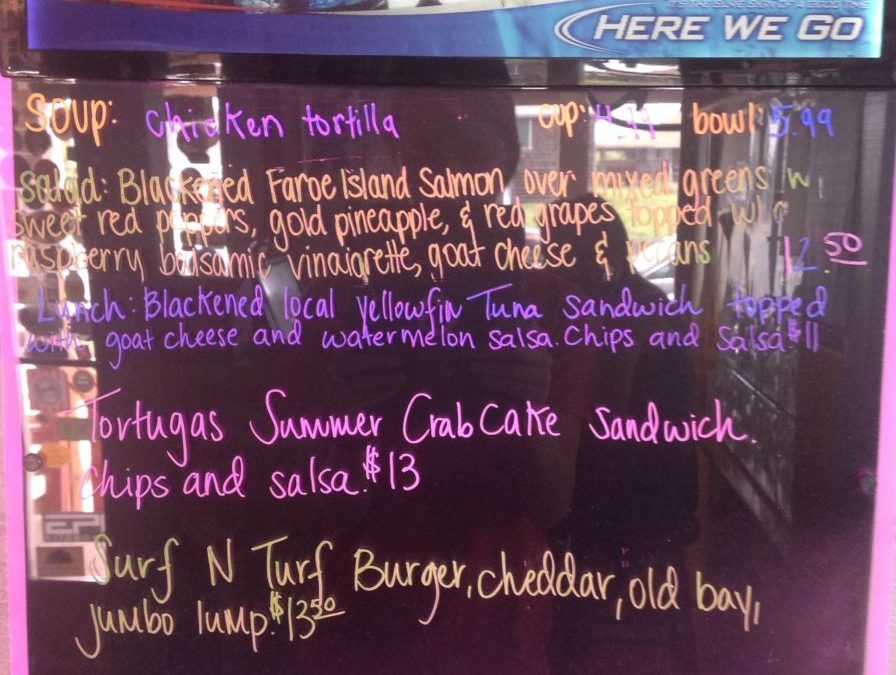 IT'S THE SURE SIGN OF A GOOD TIME
HERE WE GO
Soup: chicken tortilla cup: 4.99 bowl: 5.99
Salad: Blackened Faroe Island Salmon over mixed greens w/
sweet red peppers, gold pineapple, & red grapes topped w/ a
raspberry balsamic vinaigrette, goat cheese & pecans 12.50
Lunch: Blackened local yellowfin Tuna sandwich topped
with goat cheese and watermelon salsa. Chips and Salsa $11
Tortugas Summer Crab Cake Sandwich.
Chips and salsa. $13
Surf N Turf Burger, cheddar, old bay,
jumbo lump. $13.50